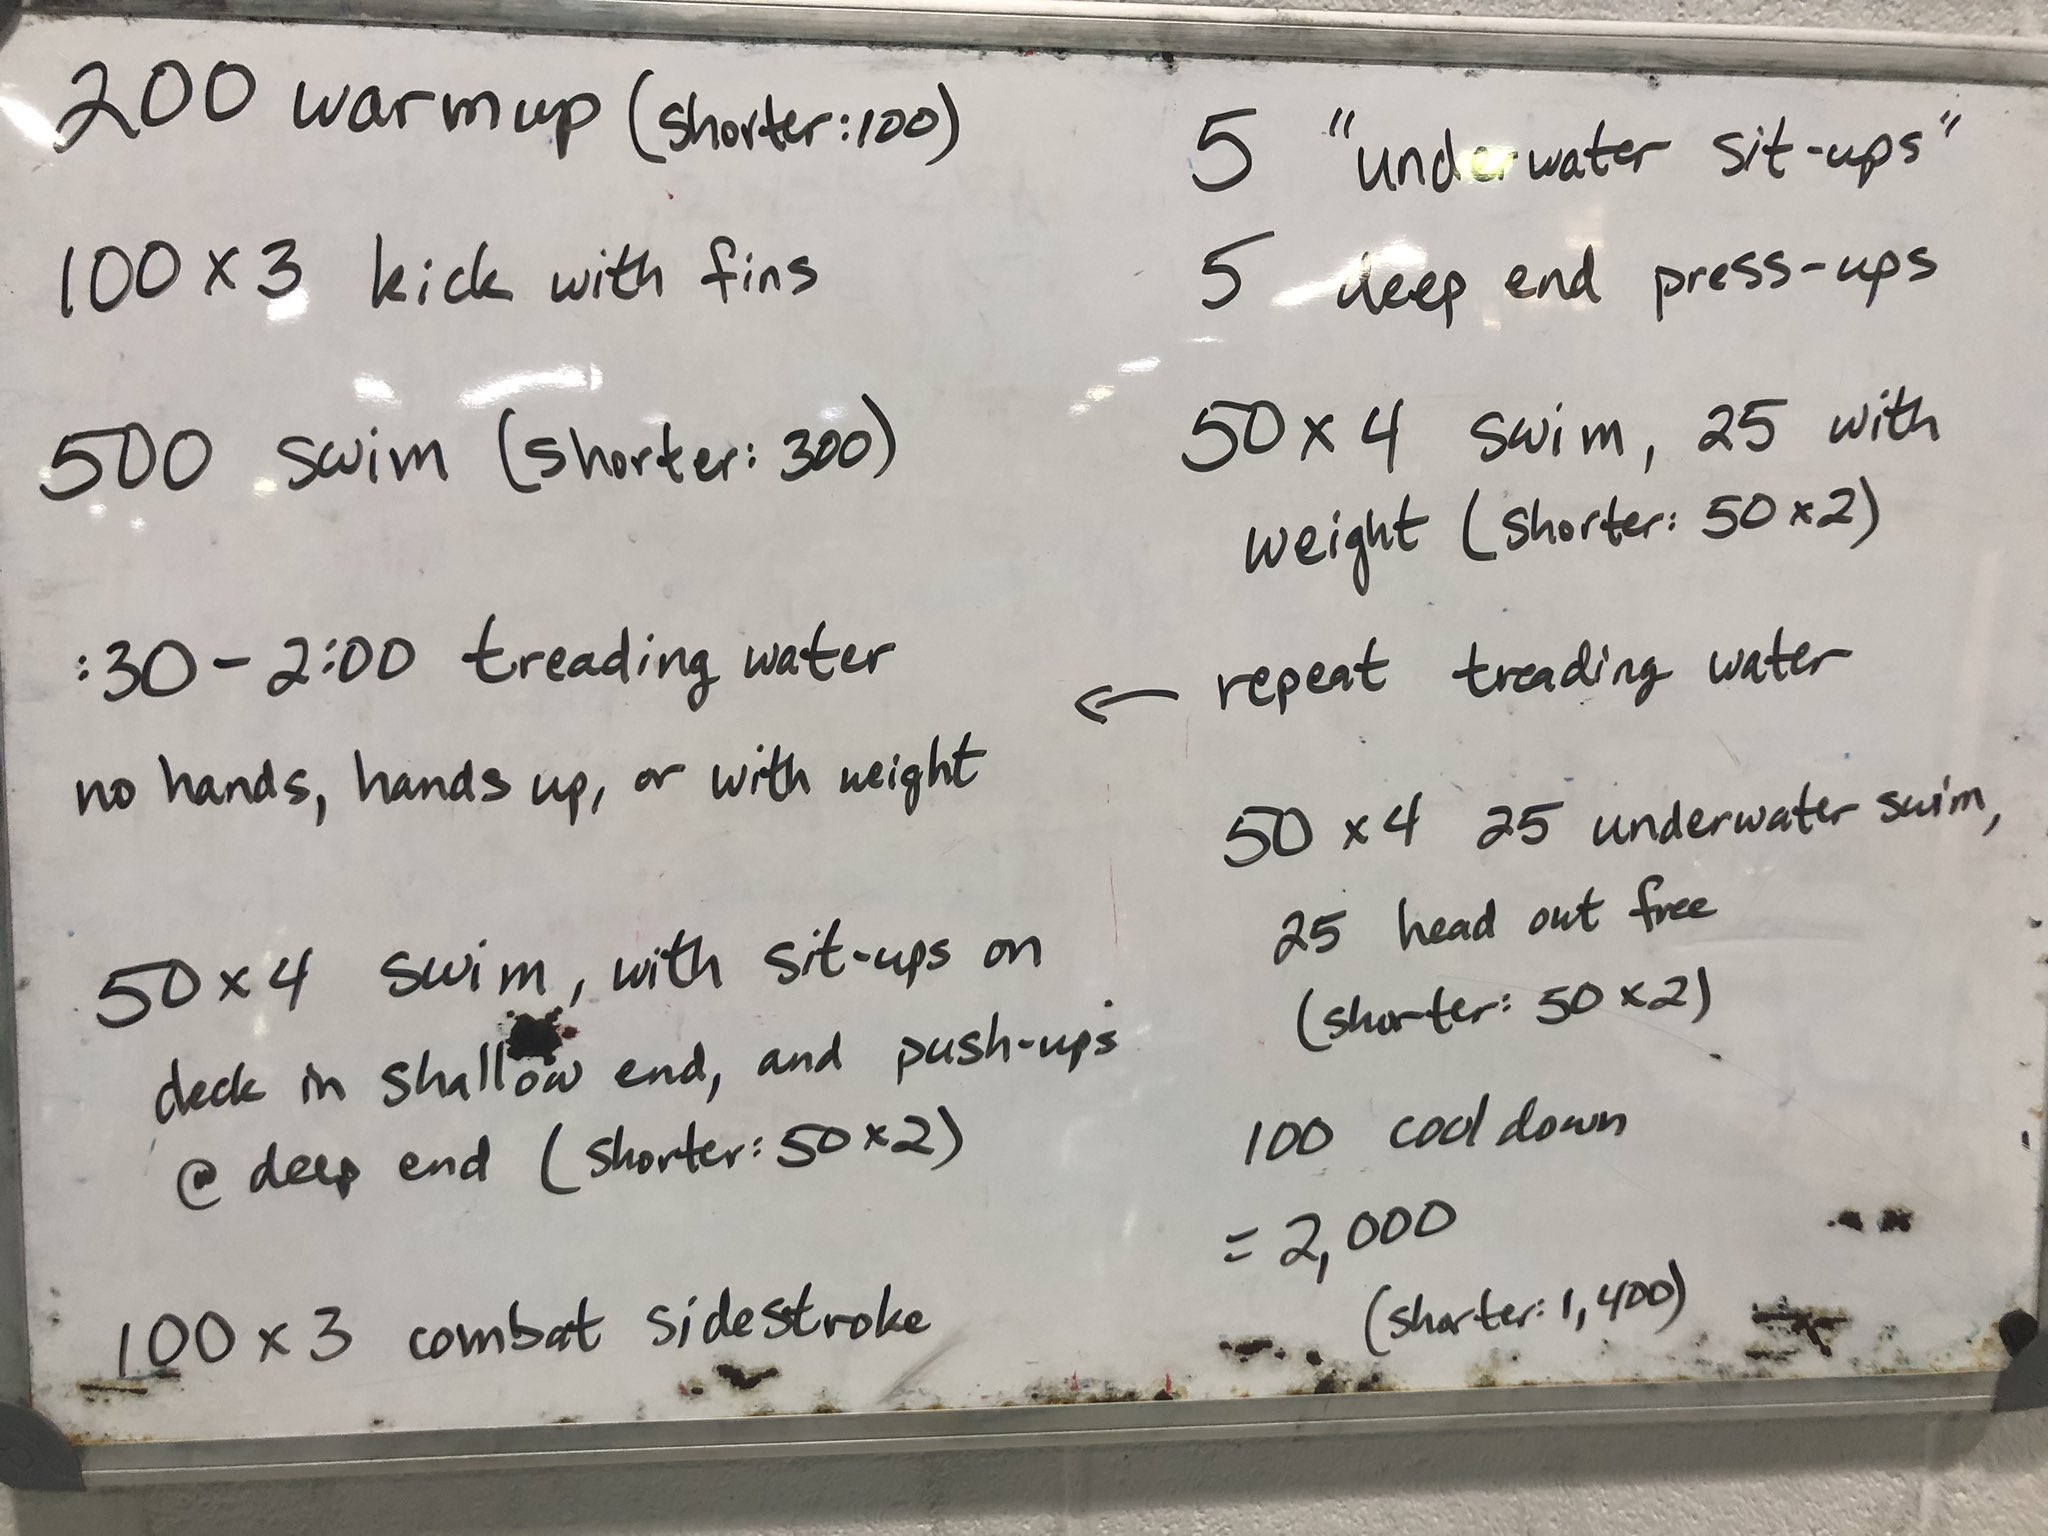 200 warmup (shorter:100)
100 x 3 kick with fins
500 swim (shorter: 300)
:30 - 2:00 treading water
no hands, hands up, or with weight
50 x 4 swim, with sit-ups on
deck in shallow end, and push-ups
@ deep end (shorter: 50 x 2)
100 x 3 combat sidestroke
5 "underwater sit-ups"
5 deep end press-ups
50 x 4 swim, 25 with
weight (shorter: 50 x 2)
← repeat treading water
50 x 4 25 underwater swim,
25 head out free
(shorter: 50 x 2)
100 cool down
= 2,000
(shorter: 1,400)